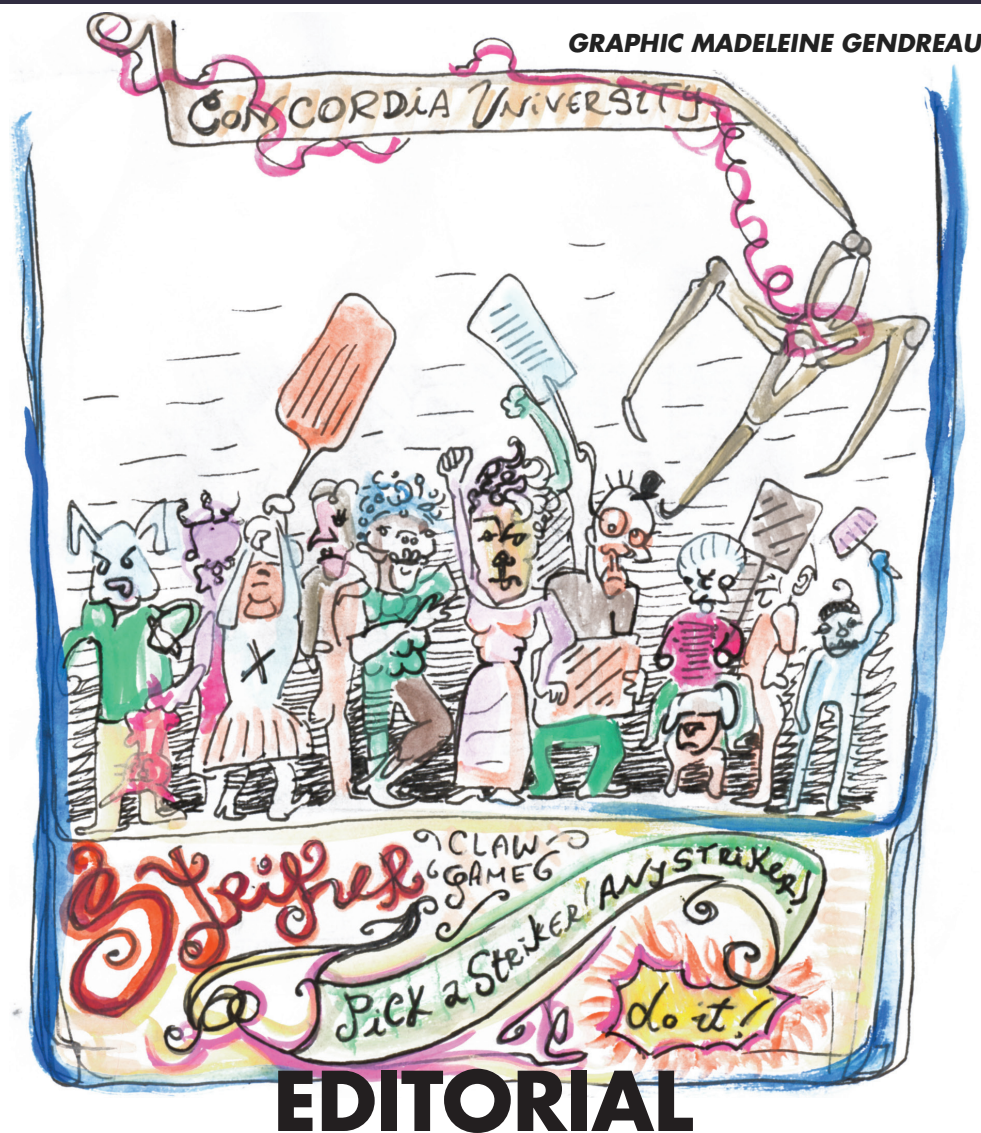 GRAPHIC MADELEINE GENDREAU
CONCORDIA UNIVERSITY
X
CLAW
GAME
PiCK a STRiKER! ANY STRiKER!
do it!
EDITORIAL